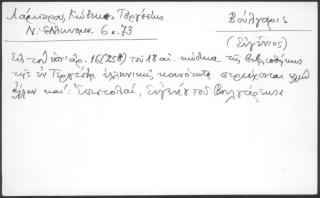 Λάμπρου, Κώδικες Τεργέστης
Ν. Ελληνομν. 6ο. 73
Βούλγαρις
(Ευγένιος)
Εις τον υπ' αρ. 16 (258) του 18 αι. κώδικα της βιβλιοθήκης
της εν Τεργέστη ελληνικής κοινότητος περιέχονται
άλλων και: Επιστολαί, Ευγενίου του Βουλγάρεως